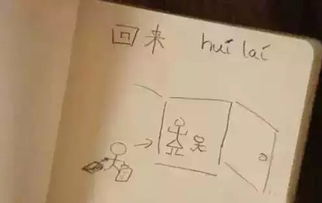 回来 huí lái